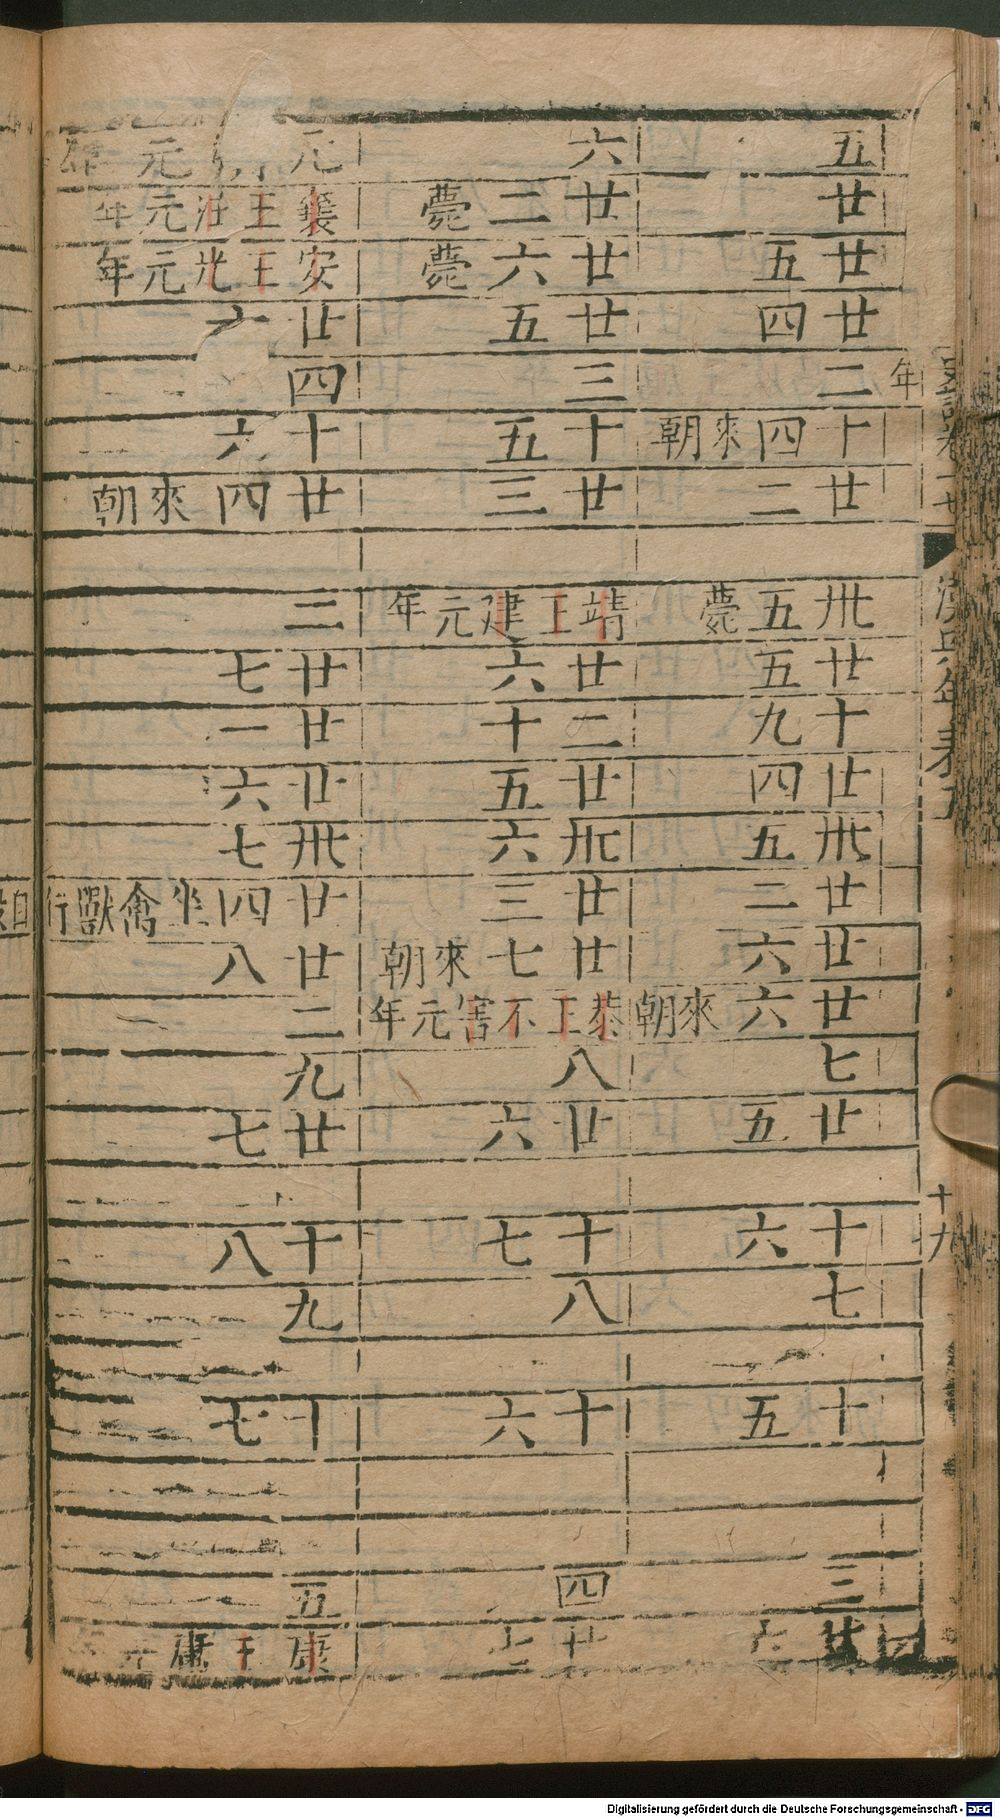 五
廿
廿五
廿四
二
十四來朝
廿二
卅五薨
廿五
十九
廿四
卅五
廿二
廿六
廿六來朝
七
廿五
十六
七
十五
三
六
廿二薨
廿六薨
廿五
三
十五
廿三
靖王建元年
廿六
二十
廿五
卅六
廿三
廿七來朝
恭王不害元年
八
廿六
十七
八
十六
四
廿七
元 元年
襄王注元年
安王光元年
廿六
四
十六
廿四來朝
三
廿七
廿一
廿六
卅七
廿四坐禽獸行自殺
廿八
二
九
廿七
十八
九
十七
五
康王庸元年
年
十九
Digitalisierung gefördert durch die Deutsche Forschungsgemeinschaft - DFG